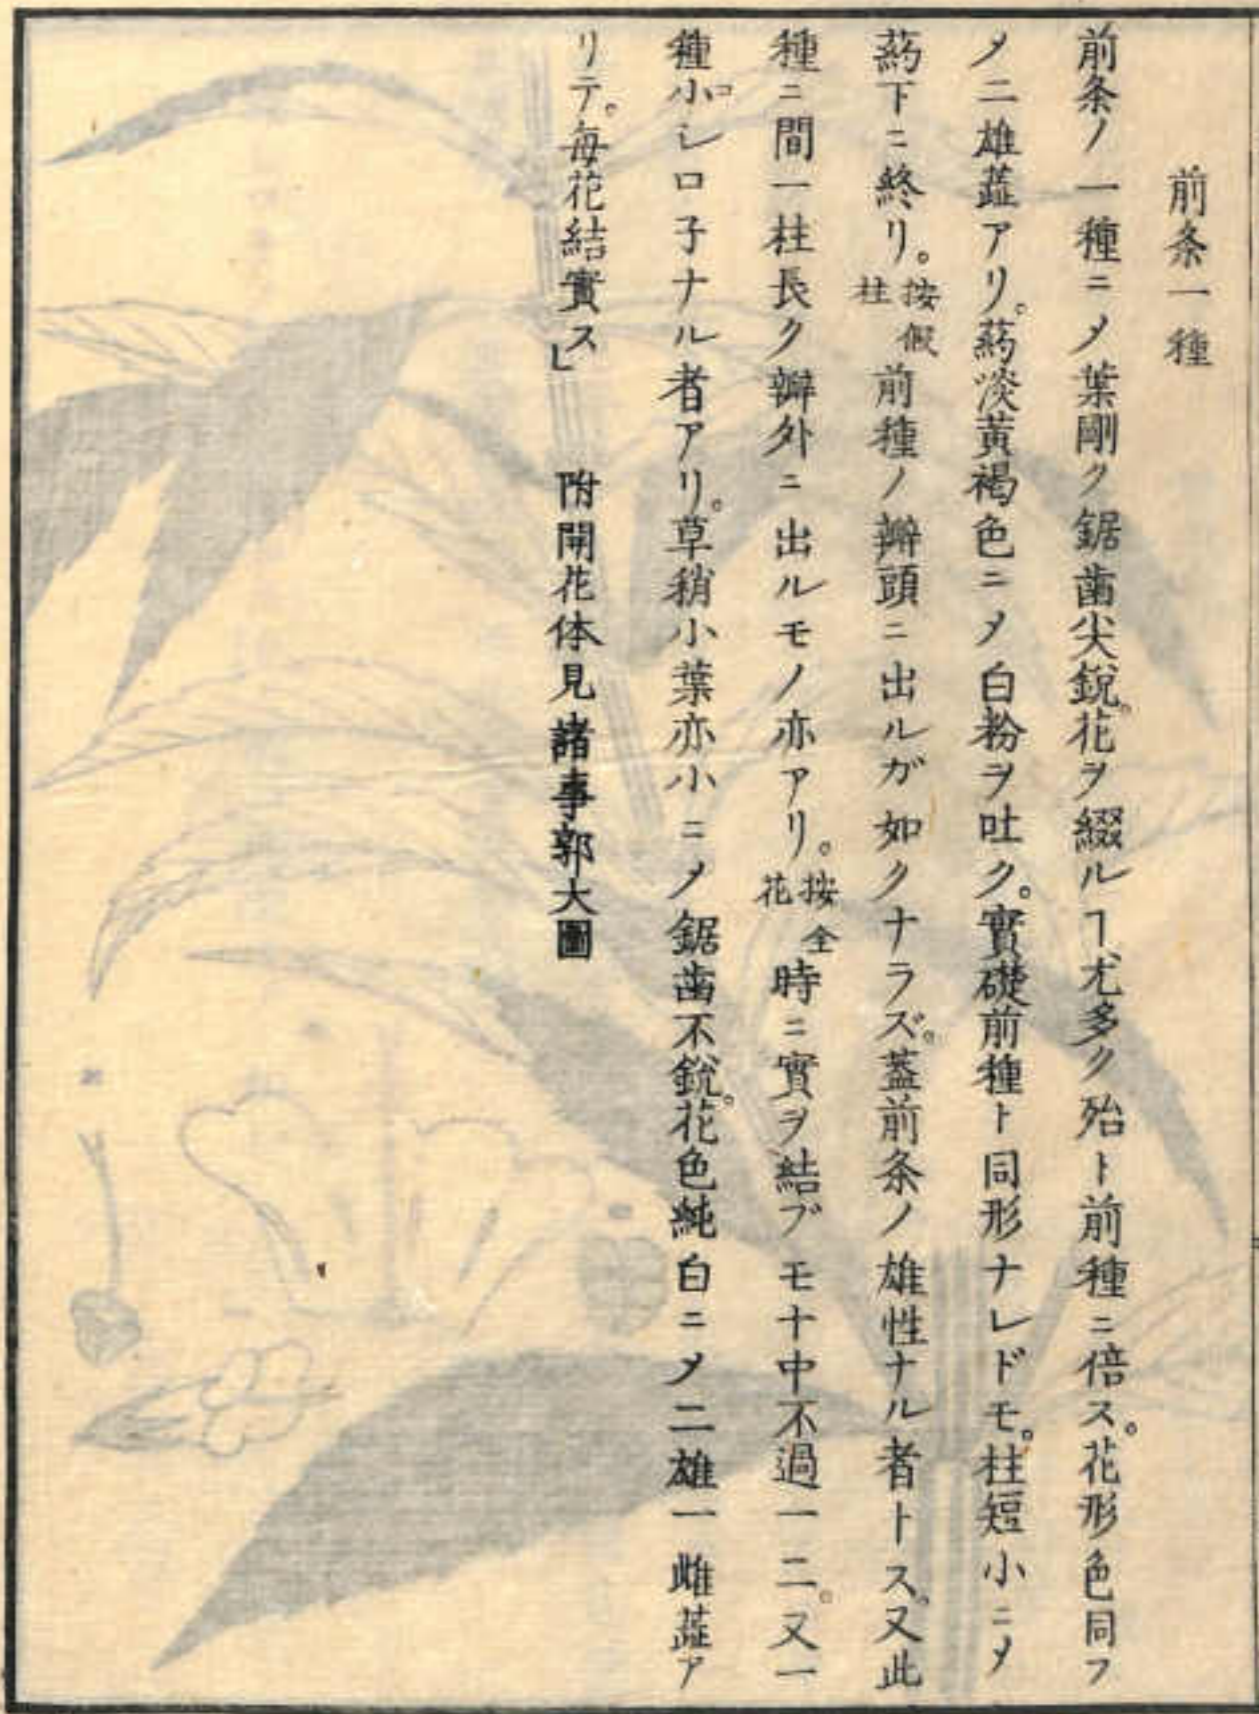 前条一種
前条ノ一種ニメ葉剛ク鋸歯尖銳。花ヲ綴ルヿ尤多ク殆ト前種ニ倍ス。花形色同フ
メ二雄蕋アリ。葯淡黄褐色ニメ白粉ヲ吐ク。實礎前種ト同形ナレドモ。柱短小ニメ
葯下ニ終リ。按假柱前種ノ瓣頭ニ出ルガ如クナラズ。蓋前条ノ雄性ナル者トス。又此
種ニ間一柱長ク瓣外ニ出ルモノ亦アリ。按全花時ニ實ヲ結ブモ十中不過一二。又一
種小コシロ子ナル者アリ。草稍小葉亦小ニメ鋸歯不銳。花色純白ニメ二雄一雌蕋ア
リテ。每花結實ス」 附開花体見諸事郭大圖